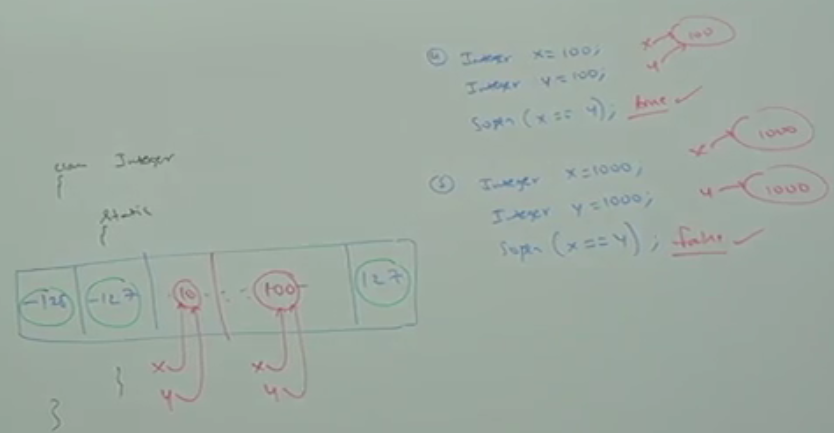 class Integer
{
static
{
-128 -127 10 : : - 100 - 127
x
y
x
y
}
}
④ Integer x=100;
Integer y=100;
Sopln (x == y); true ✓
x
y
100
⑤ Integer x=1000;
Integer y=1000;
Sopln (x == y); false ✓
x 1000
y 1000